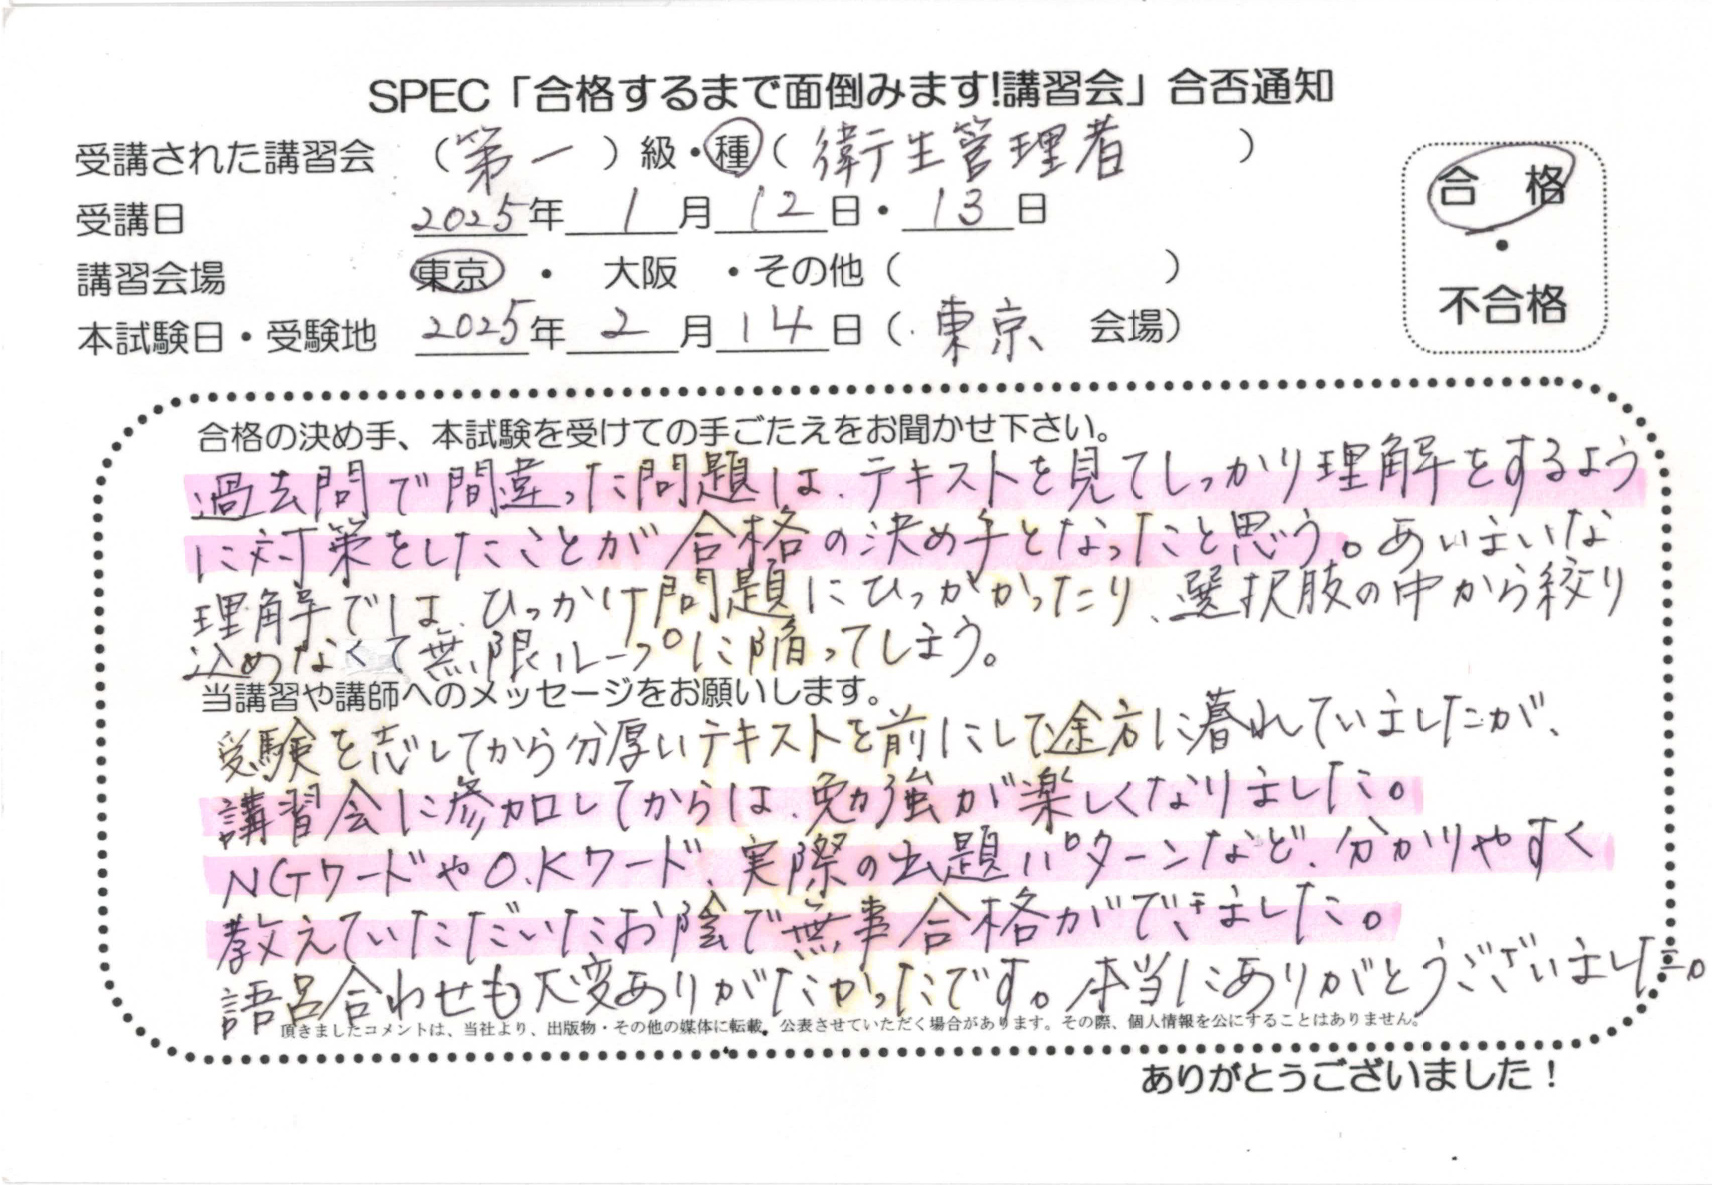 SPEC「合格するまで面倒みます!講習会」合否通知
受講された講習会 （第一）級・種（衛生管理者）
受講日 2025年1月12日・13日
講習会場 東京・大阪・その他（ ）
本試験日・受験地 2025年2月14日（東京 会場）
合格
・
不合格
合格の決め手、本試験を受けての手ごたえをお聞かせ下さい。
過去問で間違った問題は、テキストを見てしっかり理解をするよう
に対策をしたことが合格の決め手となったと思う。あいまいな
理解では、ひっかけ問題にひっかかったり、選択肢の中から絞り
込めなくて無限ループに陥ってしまう。
当講習や講師へのメッセージをお願いします。
受験を志してから分厚いテキストを前にして途方に暮れていましたが、
講習会に参加してからは、勉強が楽しくなりました。
NGワードやO.Kワード、実際の出題パターンなど、分かりやすく
教えていただいたお陰で無事合格ができました。
語呂合わせも大変ありがたかったです。本当にありがとうございました。
頂きましたコメントは、当社より、出版物・その他の媒体に転載、公表させていただく場合があります。その際、個人情報を公にすることはありません。
ありがとうございました！